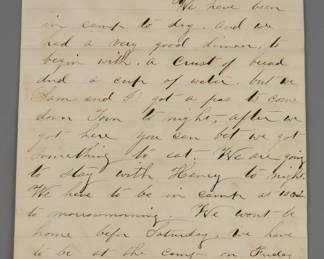 We have been
in camp to day. and we
had a very good dinner. to
begin with. a Crust of bread
and a cup of water. but we
Sam and I got a pas to come
down Town to night, after we
got here you can bet we got
something to eat. We are going
to stay with Henry to night.
We have to be in camp at
to morrow morning. We wont be
home befor Saturday. we have
to be at the camp on Friday